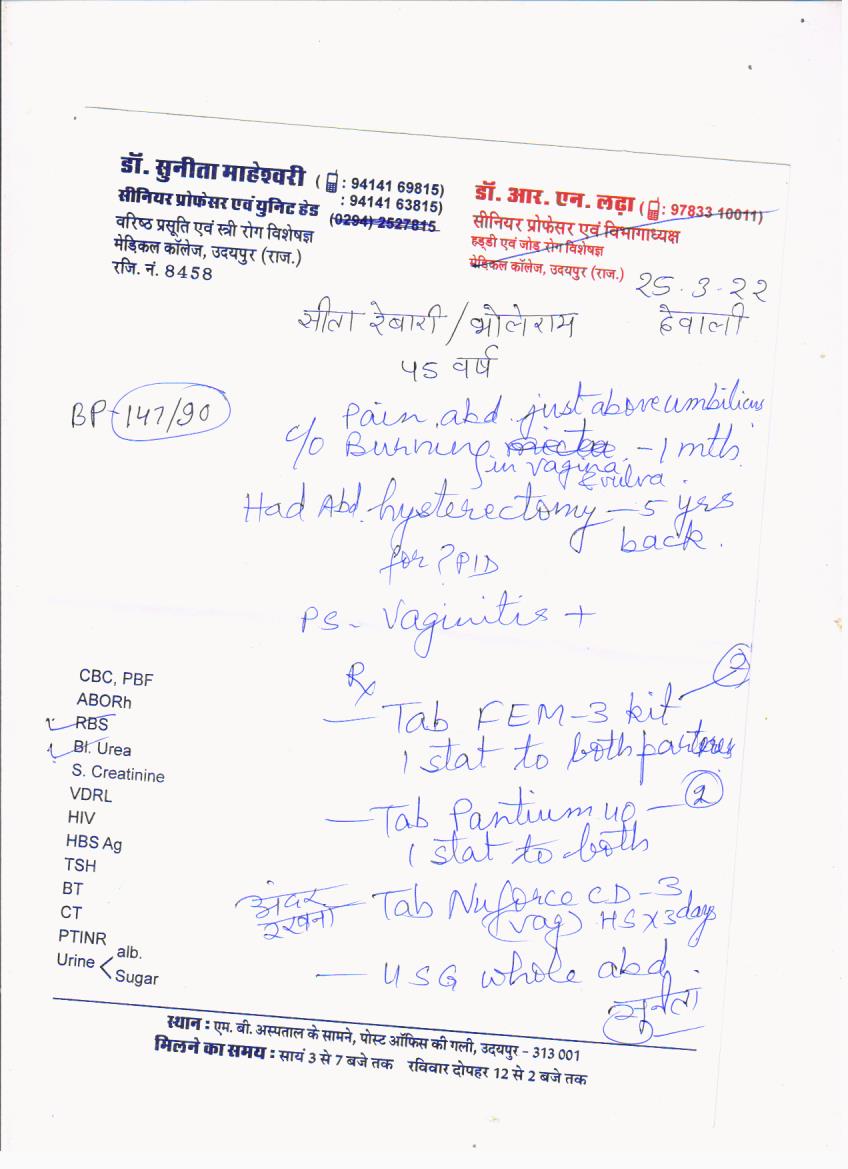 डॉ. सुनीता माहेश्वरी ( : 94141 69815)
सीनियर प्रोफेसर एवं युनिट हेड : 94141 63815)
वरिष्ठ प्रसूति एवं स्त्री रोग विशेषज्ञ (0294) 2527815
मेडिकल कॉलेज, उदयपुर (राज.)
रजि. नं. 8458
डॉ. आर. एन. लढ़ा ( : 97833 10011)
सीनियर प्रोफेसर एवं विभागाध्यक्ष
हड्डी एवं जोड़ रोग विशेषज्ञ
मेडिकल कॉलेज, उदयपुर (राज.)
25.3.22
सीता रेबारी / भोलेराम देवाली
45 वर्ष
BP-147/90
Pain abd. just above umbilicus
c/o Burning - 1 mth
in vagina & vulva.
Had Abd. hysterectomy - 5 yrs
back.
for ? PID
PS - Vaginitis +
Rx
- Tab FEM-3 kit - 2
1 stat to both partners
- Tab Pantium 40 - 2
1 stat to both
अंदर रखना - Tab Nuforce CD - 3
(vag) HS x 3 days
- USG whole abd.
सुनीता
CBC, PBF
ABORh
RBS
Bl. Urea
S. Creatinine
VDRL
HIV
HBS Ag
TSH
BT
CT
PTINR
Urine < alb.
Sugar
स्थान : एम. बी. अस्पताल के सामने, पोस्ट ऑफिस की गली, उदयपुर - 313 001
मिलने का समय : सायं 3 से 7 बजे तक रविवार दोपहर 12 से 2 बजे तक